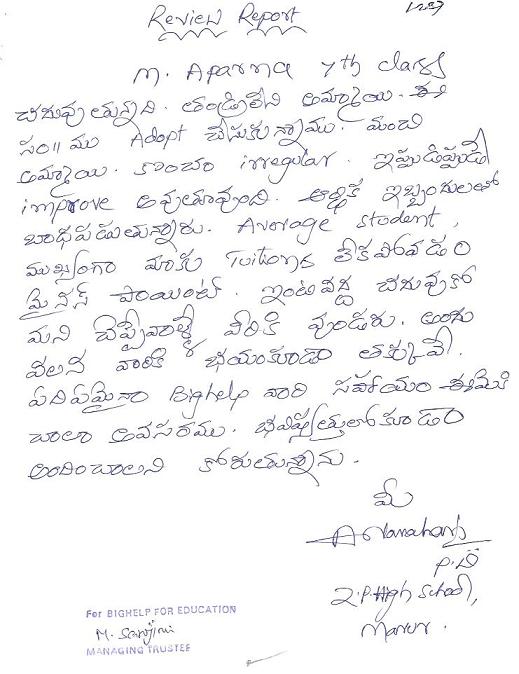 Review Report
M. Aparna 7th class
చదువుతున్నది. తండ్రిలేని అమ్మాయి. ఈ
సం॥ము Adopt చేసుకున్నాము. మంచి
అమ్మాయి. కొంచం irregular. ఇప్పుడిప్పుడే
improve అవుతూవుంది. ఆర్థిక ఇబ్బందులతో
బాధపడుతున్నారు. Average student,
ముఖ్యంగా మాకు Tuitions లేకపోవడం
మైనస్ పాయింట్. ఇంటివద్ద చదువుకో
మని చెప్పేవాళ్ళే వీరికి వుండరు. అందు
వలన వారికి భయంకూడా తక్కువే.
ఏదిఏమైనా Bighelp వారి సహాయం ఈమెకి
చాలా అవసరము. భవిష్యత్తులోకూడా
అందించాలని కోరుతున్నాను.
మీ
P.D
Z.P.High School,
For BIGHELP FOR EDUCATION
M. Sarojini
MANAGING TRUSTEE